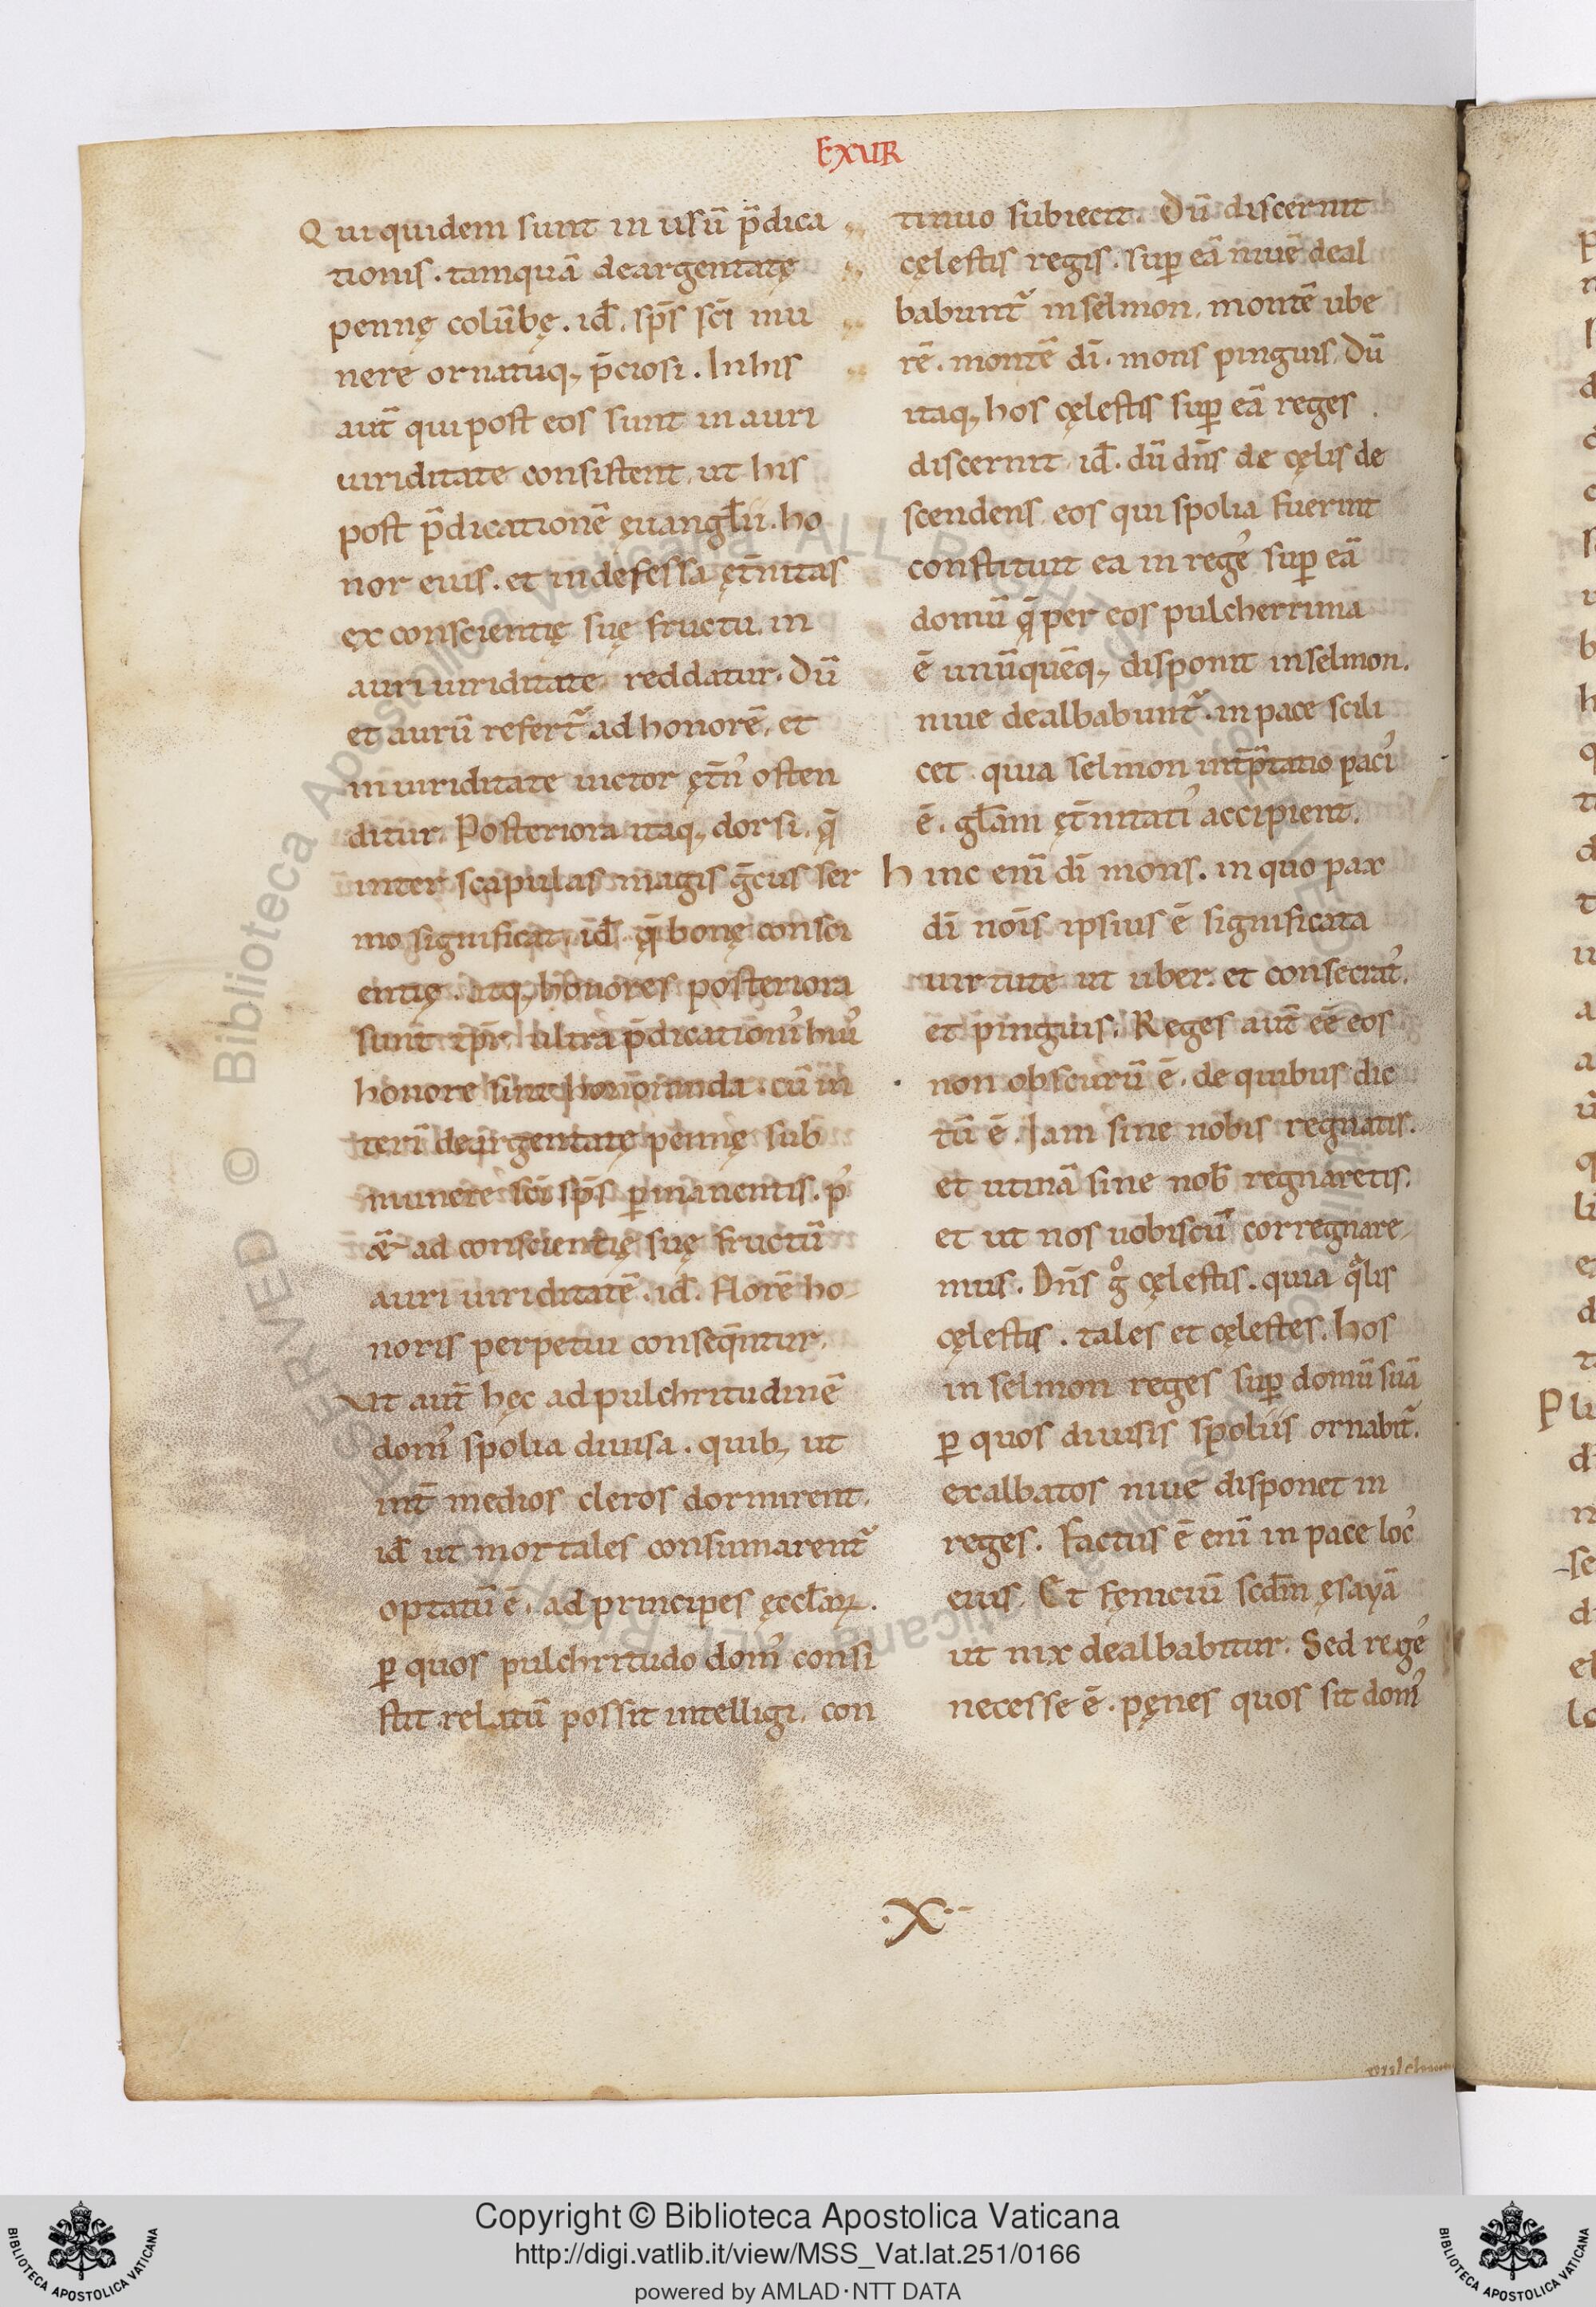 EXUR
Qui quidem sunt in usū p̄dica
tionis. tamquā deargentatę
pennę colūbę. id̄. sp̄s sc̄i mu
nere ornatuq; p̄ciosi. In his
aut̄ qui post eos sunt in auri
uiriditate consistent, ut his
post p̄dicationē ęuangl̄ii. ho
nor eius. et indefessa ęt̄nitas
ex conscientię suę fructu. in
auri uiriditate reddatur. Dū
et aurū refert᷑ ad honorē, et
in uiriditate uictor ęt̄n᾽ osten
ditur. Posteriora itaq; dorsi. q̄
inter scapulas magis ḡcus ser
mo significat, id̄. q̄ bonę consci
entię. atq; honores posteriora
sunt. ip̄r ultra p̄dication᾽ hui᾽
honore sint honoranda. cū in
terī deargentatę pennę sub
munere sc̄i sp̄s ꝑmanentis. p᾽
ad conscientię suę fructū
auri uiriditatē. id̄. florē ho
noris perpetui conseq̄ntur.
Vt aut̄ hęc ad pulchritudinē
dom᾽ spolia diuisa. quib; ut
int̄ medios cleros dormirent.
id̄ ut mortales consumarent᷑
optatū ē. ad principes ęccl̄aꝝ.
ꝑ quos pulchritudo dom᾽ consi
stit relatū possit intelligi. con
tinuo subiecit. Dū discernit
cęlestis reges. suꝑ eā niuē deal
babunt᷑ in selmon. montē ube
rē. montē dī. mons pinguis. Dū
itaq; hos cęlestis suꝑ eā reges
discernit. id̄. dū dn̄s de cęlis de
scendens eos qui spolia fuerint
constituit ea in rege᾽ suꝑ eā
domū q̄ per eos pulcherrima
ē unūquēq; disponit in selmon.
niue dealbabunt᷑. in pace scili
cet. quia selmon int̄p̄tatio paci᾽
ē. gl̄am ęt̄nitati᾽ accipient.
Hinc enī dī mons. in quo pax
dī nōis ipsius ē significata
uirtute ut uber. et consecrat᾽.
et pinguis. Reges aut̄ eē eos
non obscurū ē. de quibus dic
tū ē. Iam sine nobis regnatis.
et utinā sine nob̄ regnaretis.
et ut nos uobiscū corregnare
mus. Dn̄s gͦ cęlestis. quia q̄lis
cęlestis. tales et cęlestes. hos
in selmon reges suꝑ domū suā
ꝑ quos diuisis spoliis ornabit᷑.
exalbatos niue disponet in
reges. Factus ē enī in pace loc᾽
eius. Et fęniciū scdm̄ ęsayā
ut nix dealbabitur. Sed rege᾽
necesse ē. pęnes quos sit dom᾽
.X.
Copyright © Biblioteca Apostolica Vaticana
http://digi.vatlib.it/view/MSS_Vat.lat.251/0166
powered by AMLAD·NTT DATA
BIBLIOTECA APOSTOLICA VATICANA
BIBLIOTECA APOSTOLICA VATICANA